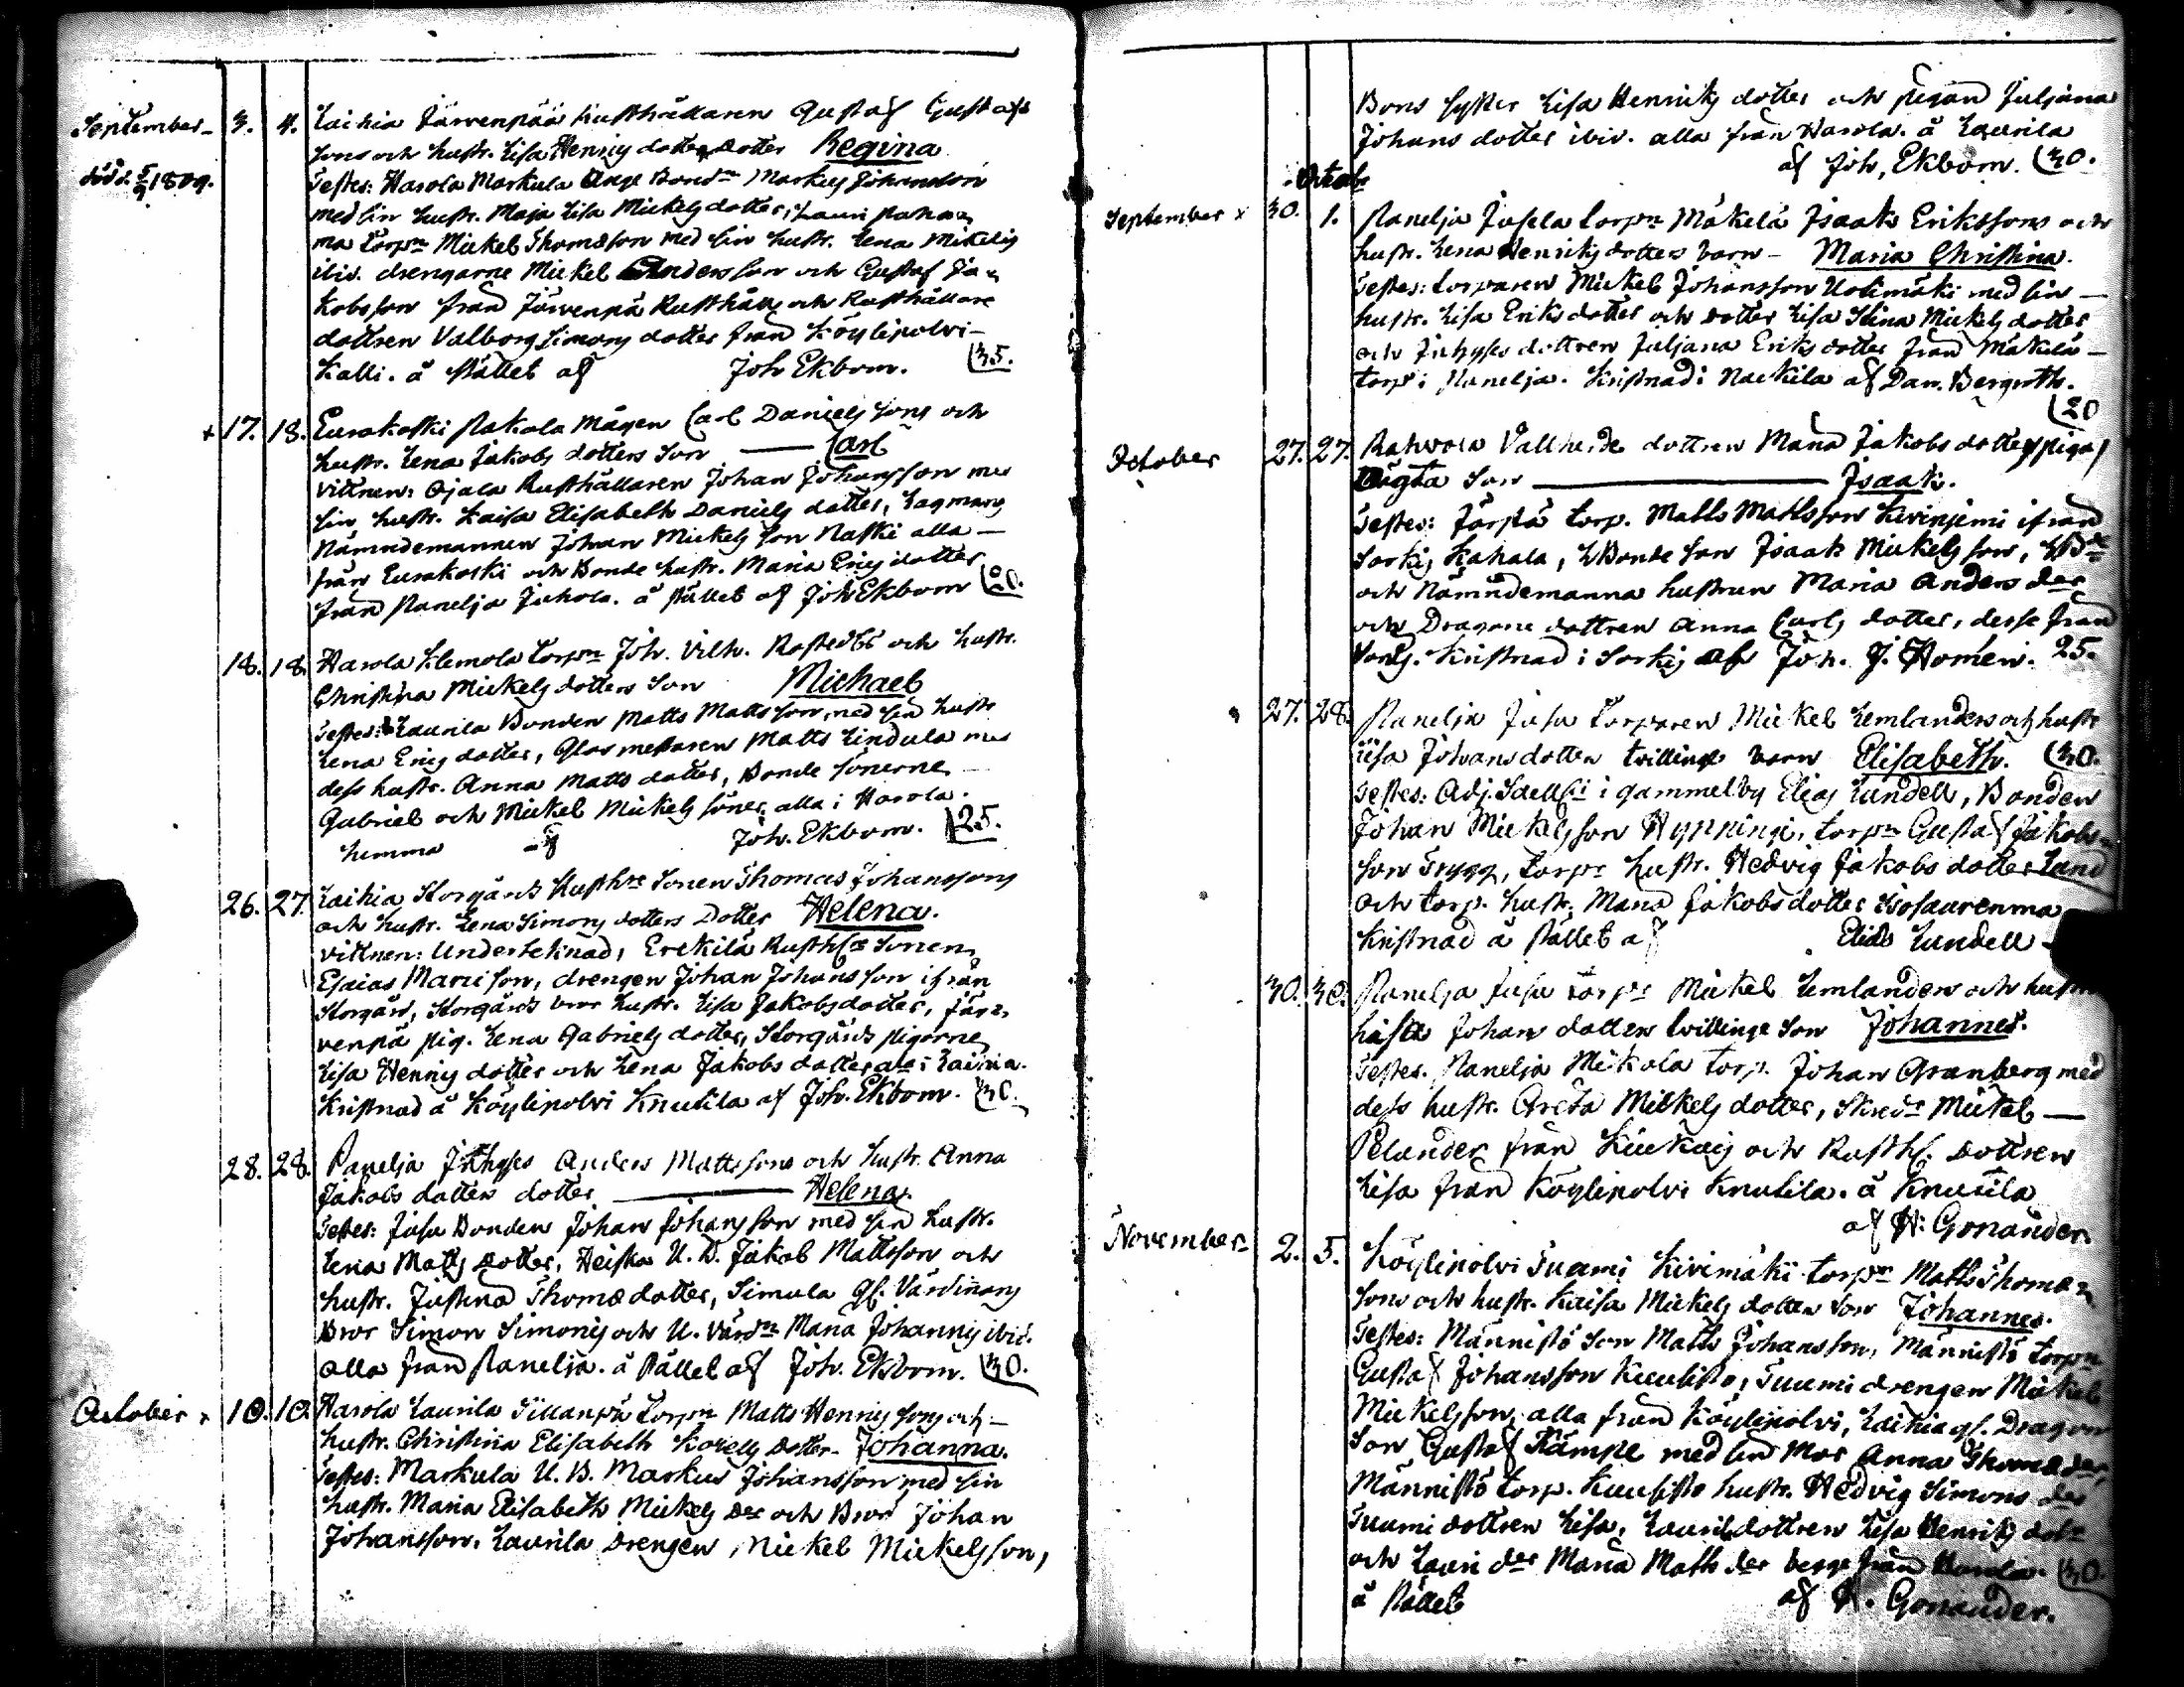 September 3. 4. Laihia Järvenpää Rusthållaren Gustaf Gustafs
sons och hustr. Lisa Henrics dotters dotter Regina
död d. 5/9 1809.
Testes: Harola Markula Unge Bond:n Markus Johansson
med sin hustr. Maja Lisa Mickels dotter, Lauri
ma Torp:n Mickel Thomasson med sin hustr. Lena Mickels
ibid. drengarne Mickel Andersson och Gustaf Ja-
kobsson från Järvenpä Rusthåll och Rusthållare
dottren Valborg Simons dotter från Köylipolvi
Kalli. å stället af Joh Ekbom. 35.
+ 17. 18. Eurakoski Pakola Mågen Carl Daniels sons och
hustr. Lena Jakobs dotters Son — Carl
vittnen: Ojala Rusthållaren Johan Johansson med
sin hustr. Kaisa Elisabeth Daniels dotter, Lagmans
Nämndemannen Johan Mickels son Naski alla —
från Eurakoski och Bonde hustr. Maria Erics dotter
från Panelja Juhola. å stället af Joh Ekbom 20.
18. 18. Harola Klemola Torp:n Joh. Vilh. Rostedts och hustr.
Christina Mickels dotters Son Michael
Testes: Laurila Bonden Matts Mattsson, med sin hustr
Lena Erics dotter, Glasmestaren Matts Lindula med
dess hustr. Anna Matts dotter, Bonde Sönerne —
Gabriel och Mickel Mickels söner, alla i Harola.
hemma af Joh. Ekbom. 25.
26. 27. Laihia Storgårds Rusth:re Sonen Thomas Johanssons
och hustr. Lena Simons dotters Dotter Helena.
vittnen: Undertecknad, Erekilä Rusth:s Sonen
Esaias Mariison, drengen Johan Johansson ifrån
Storgård, Storgårds bror hustr. Lisa Jakobsdotter, Jär-
venpä pig. Lena Gabriels dotter, Storgårds pigorne
Lisa Henrics dotter och Lena Jakobs dotter alla i Laihia.
Kristnad å Köylipolvi Knutila af Joh. Ekbom. 30.
28. 28. Panelja Inhyses Anders Mattssons och hustr. Anna
Jakobs dotters dotter — Helena.
Testes: Jusu Bonden Johan Johansson med sin hustr.
Lena Matts dotter, Heiska U. B. Jakob Mattsson och
hustr. Justina Thomædotter, Simula Gl. Värdinnans
Bror Simon Simonis och U. Värd:n Maria Johannis ibid.
alla från Panelja. å stället af Joh. Ekbom. 30.
October + 10. 10. Harola Laurila Sillanpä Torp:n Matts Henrics sons och —
hustr. Christina Elisabeth dotter. Johanna.
Testes: Markula U. B. Markus Johansson med sin
hustr. Maria Elisabeth Mickels D:r och Bror Johan
Johansson. Laurila Drengen, Mickel Mickelsson,
Bons syster Lisa Henriks dotter och pigan Juljana
Johans dotter ibid. alla från Harola. å Laurila
af Joh. Ekbom. 30.
Octob:
September + 30. 1. Panelja Jusela Torp:n Mäkelä Isaak Erikssons och
hustr. Lena Henriks dotters barn — Maria Christina.
Testes: torparen Mickel Johansson Uotimäki med sin —
hustr. Lisa Eriks dotter och dotter Lisa Stina Mickels dotter
och Inhyses dottren Juljana Eriks dotter från Mäkelä —
torp i Panelja. Kristnad i Nackila af Dan. Bergroth.
20
October 27. 27. Rahvola Vallherde dottren Maria Jakobs dotters piga,
Oägta Son — Isaak.
Testes: Järstä torp. Matts Mattsson Kevinjemi ifrån
Sorkis Kahala, Bonde son Isaak Mickelsson,
och Nämndemanna hustrun Maria Anders d:er
och Dragone dottren Anna Carls dotter, desse från
Kristnad i Sorkis af Joh. J. Homén. 25.
27. 28. Panelja Jusu torparen Mickel Lemlanders och hustr
Lisa Johans dotters tvillinge barn Elisabeth. 30.
Testes: Adj. i gammelby Elias Lundell, Bonden
Johan Mickelsson Hyppingi, torp:n Gustaf Jakobs
son Trygg, torp:r hustr. Hedvig Jakobs dotter Lund
och torp. hustr. Maria Jakobs dotter Isosaurenma
Kristnad å stället af Elias Lundell —
30. 30. Panelja Jusu torp:r Mickel Lemlanders och hustr
Lisa Johans dotters tvillinge Son Johannes.
Testes. Panelja Mickola torp. Johan Granberg med
dess hustr. Greta Mickels dotter, Skred:r Mickel —
Pelander från Kiukais och Rusth. Dottren
Lisa från Köylipolvi Knutila. å Knutila
af H. Gonander.
November 2. 5. Köylipolvi Tuomi Kivimäki torp:n Matts Thomæ
sons och hustr. Kaisa Mickels dotters Son Johannes.
Testes: Männistö Son Matts Johansson, Männistö torp:n
Gustaf Johansson Kuusisto, Tuomi drengen Mickel
Mickelsson, alla från Köylipolvi, Laihia gl. Dragon
Son Gustaf Kämpe med sin Mor Anna Thomæ d:er
Männistö torp. Kuusisto hustr. Hedvig Simons d:er
Tuomi dottren Lisa, Laurila dottren Lisa Henriks dot:r
och Lauri d:er Maria Matts d:er begge från Harola. 30.
å stället af H. Gonander.